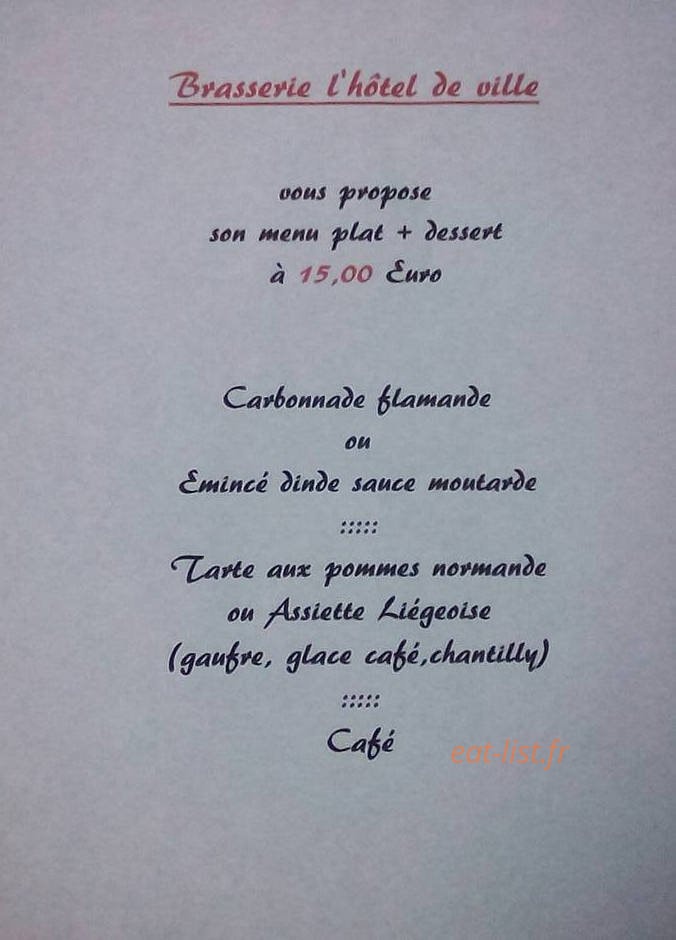 Brasserie l'hôtel de ville
vous propose
son menu plat + dessert
à 15,00 Euro
Carbonnade flamande
ou
Emincé dinde sauce moutarde
:::::
Tarte aux pommes normande
ou Assiette Liégeoise
(gaufre, glace café,chantilly)
:::::
Café
eat-list.fr